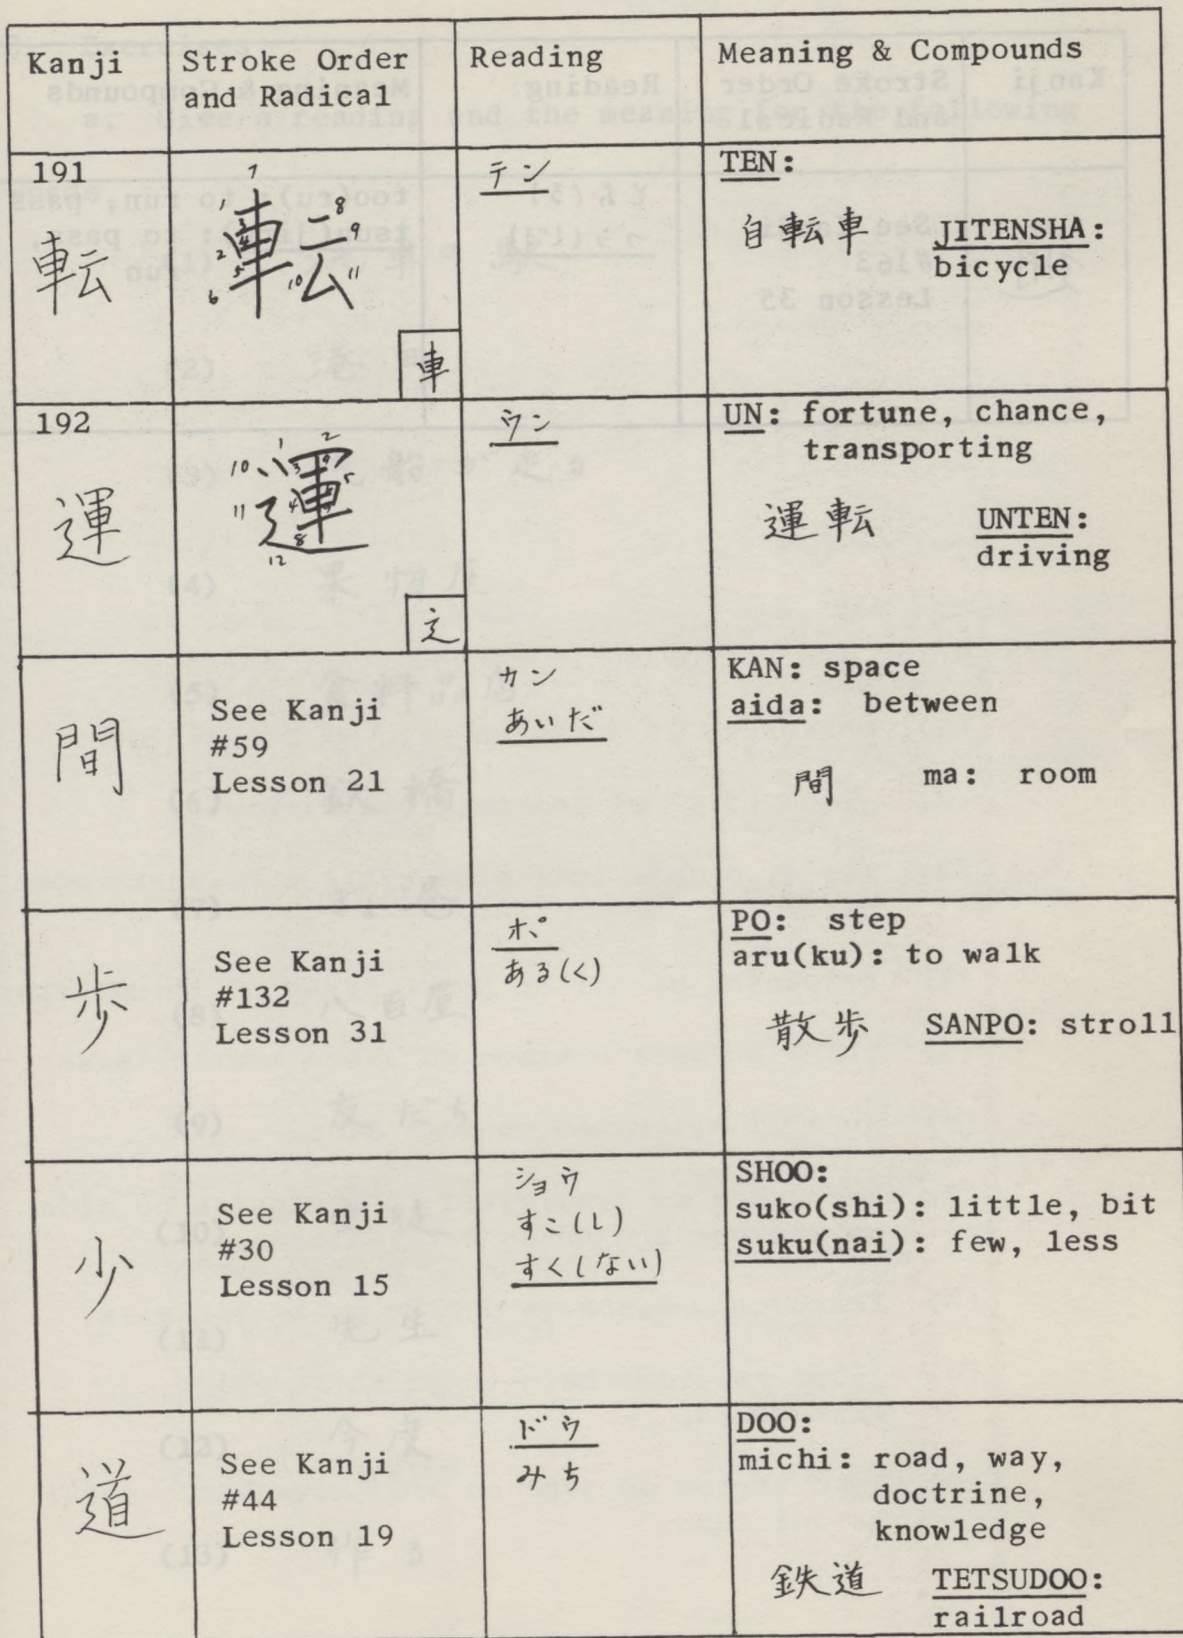 Kanji
Stroke Order
and Radical
Reading
Meaning & Compounds
191
転
1
2
3
4
5
6
7
8
9
10
11
転
車
テン
TEN:
自転車 JITENSHA:
bicycle
192
運
1
2
3
4
5
8
10
11
12
運
辶
ウン
UN: fortune, chance,
transporting
運転 UNTEN:
driving
間
See Kanji
#59
Lesson 21
カン
あいだ
KAN: space
aida: between
間 ma: room
歩
See Kanji
#132
Lesson 31
ポ
ある(く)
PO: step
aru(ku): to walk
散歩 SANPO: stroll
少
See Kanji
#30
Lesson 15
ショウ
すこ(し)
すく(ない)
SHOO:
suko(shi): little, bit
suku(nai): few, less
道
See Kanji
#44
Lesson 19
ドウ
みち
DOO:
michi: road, way,
doctrine,
knowledge
鉄道 TETSUDOO:
railroad